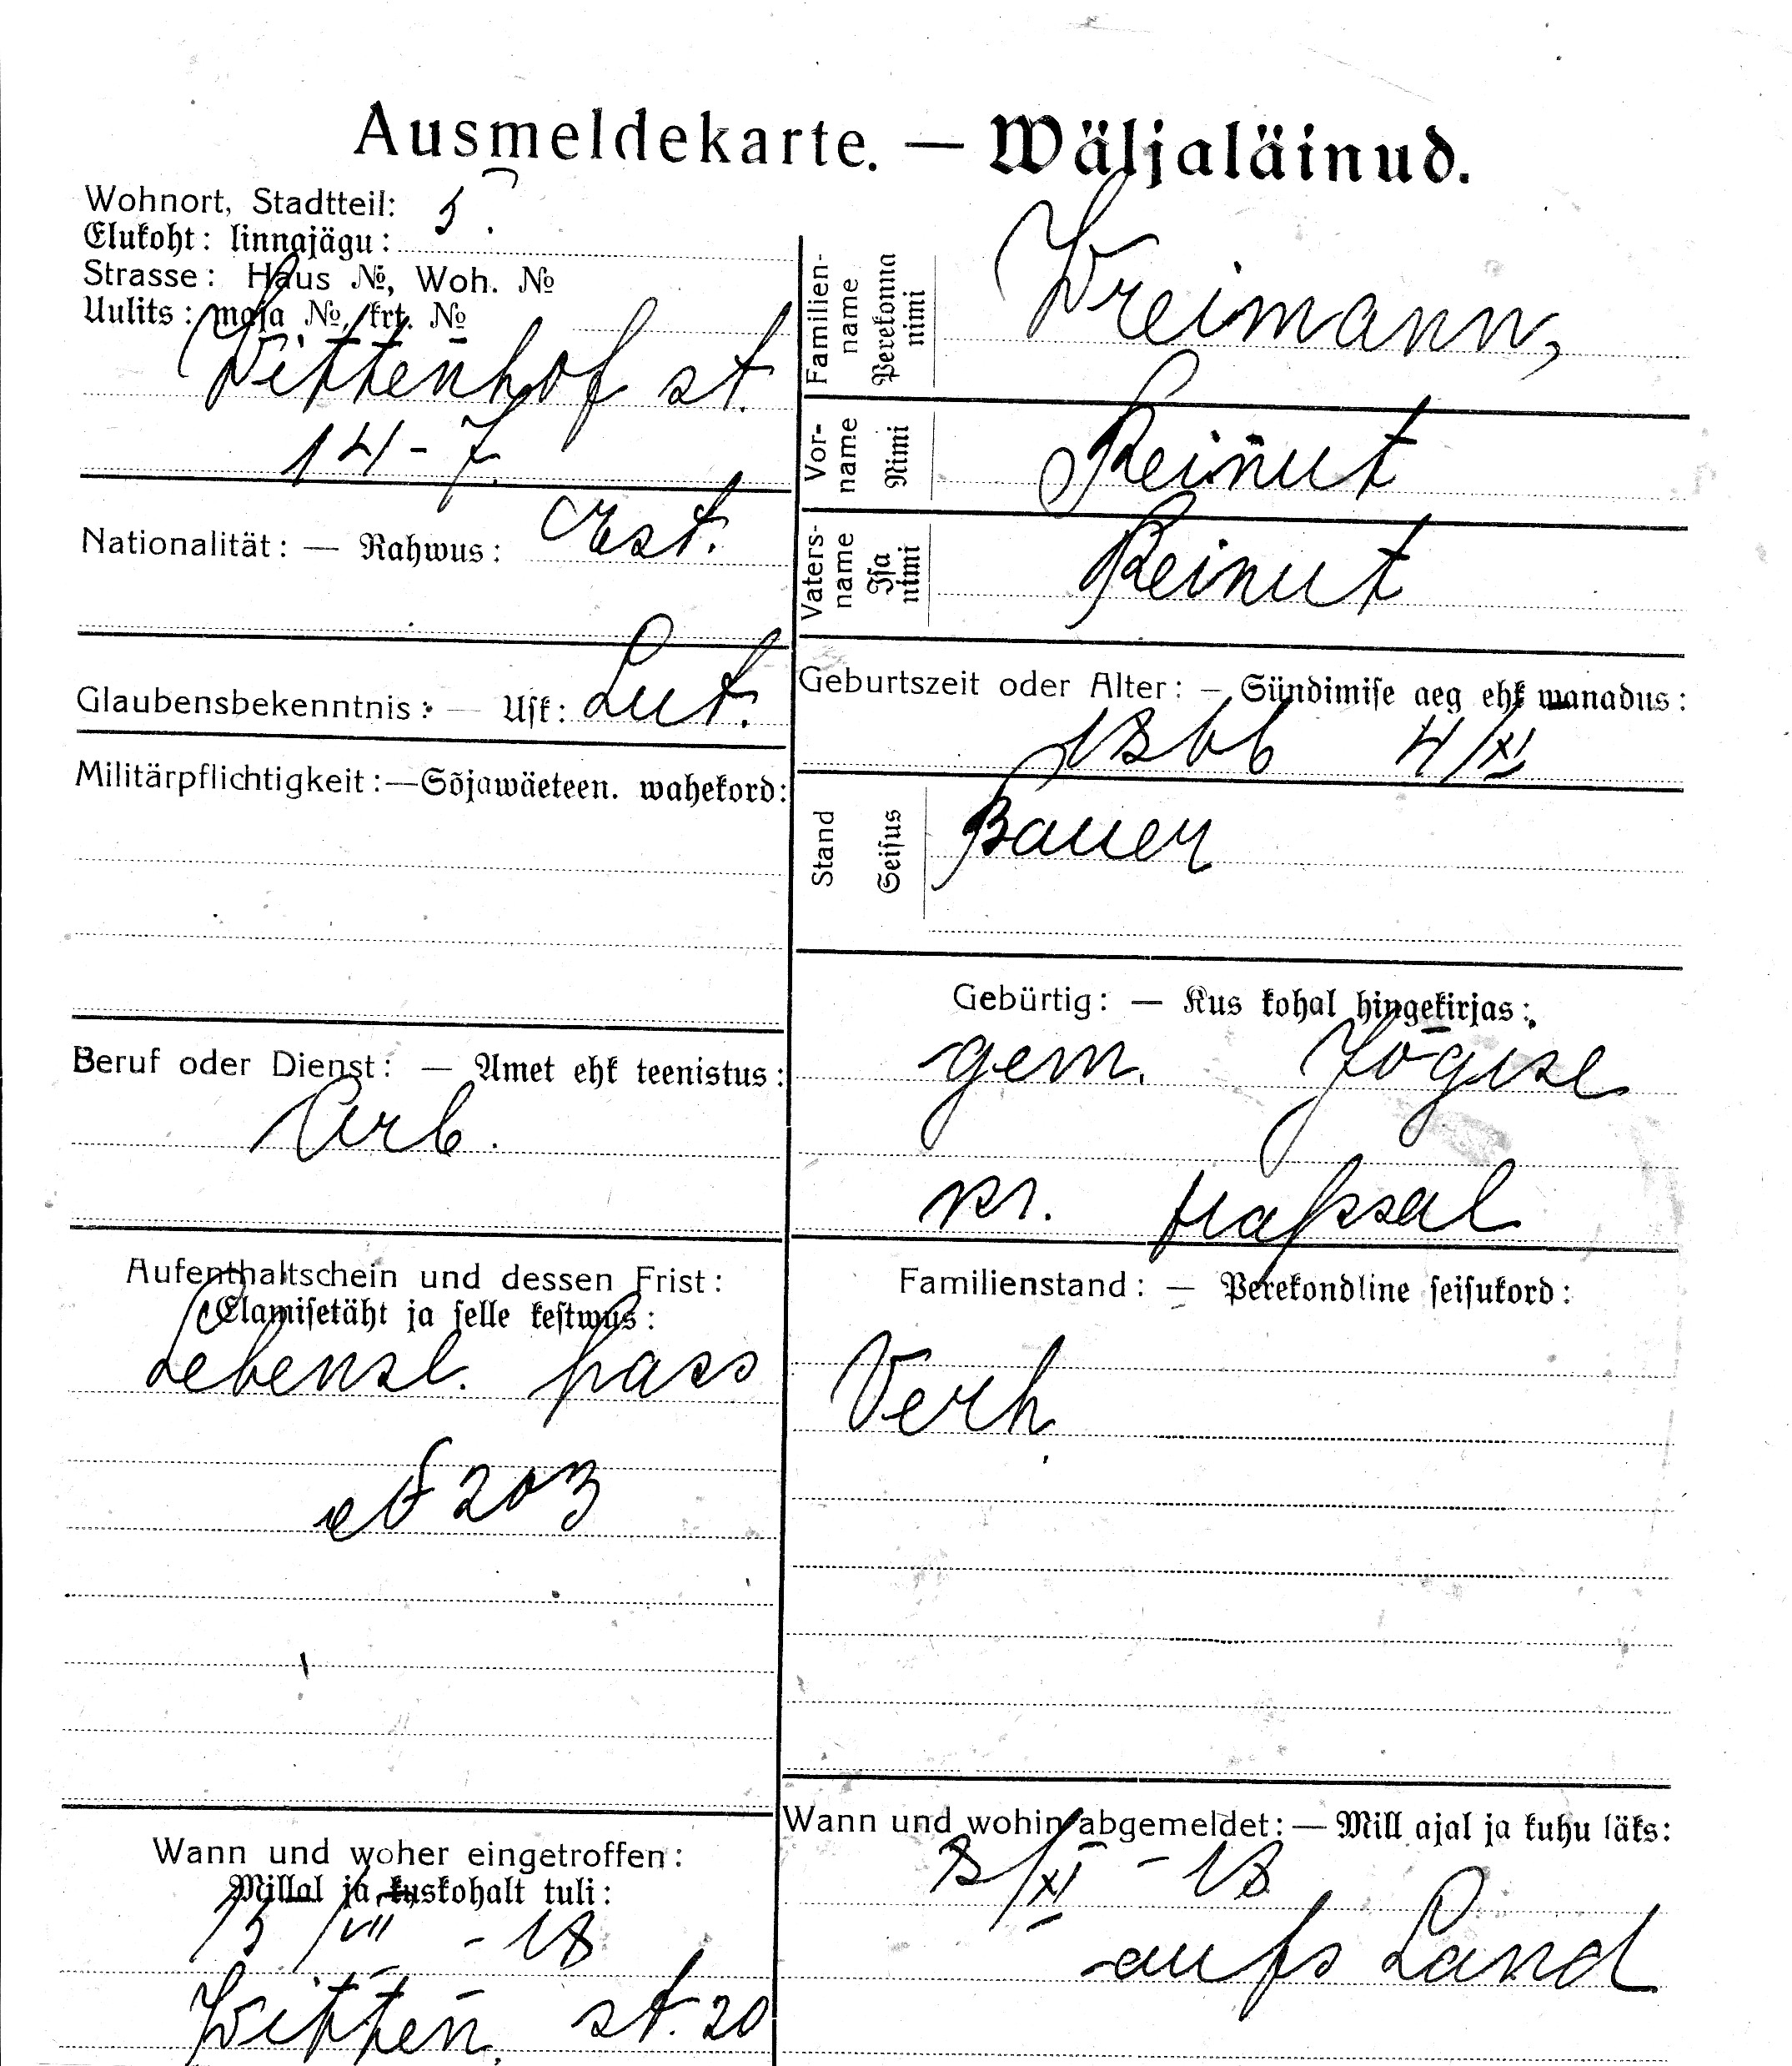 Ausmeldekarte. — Wäljaläinud.
Wohnort, Stadtteil: 5.
Elukoht: linnajägu:
Strasse: Haus №, Woh. №
Uulits: maja №, krt. №
Wittenhof st.
14-7.
Nationalität: — Rahwus: Est.
Glaubensbekenntnis: — Usk: Lut.
Militärpflichtigkeit:—Sõjawäeteen. wahekord:
Beruf oder Dienst: — Amet ehk teenistus:
Arb.
Aufenthaltschein und dessen Frist:
Elamisetäht ja selle kestwus:
Lebensl. pass
№ 203
Wann und woher eingetroffen:
Millal ja kuskohalt tuli:
/VII - 18
Witten. st. 20
Familien-
name
Perekonna
nimi
Weimann,
Vor-
name
Nimi
Reinut
Vaters-
name
Isa
nimi
Reinut
Geburtszeit oder Alter: — Sündimise aeg ehk wanadus:
1866 4/XI
Stand
Seisus
Bauer
Gebürtig: — Kus kohal hingekirjas:
gem. Jõgise
kr. Hapsal
Familienstand: — Perekondline seisukord:
Verh.
Wann und wohin abgemeldet:— Mill ajal ja kuhu läks:
8/XI - 18
aufs Land